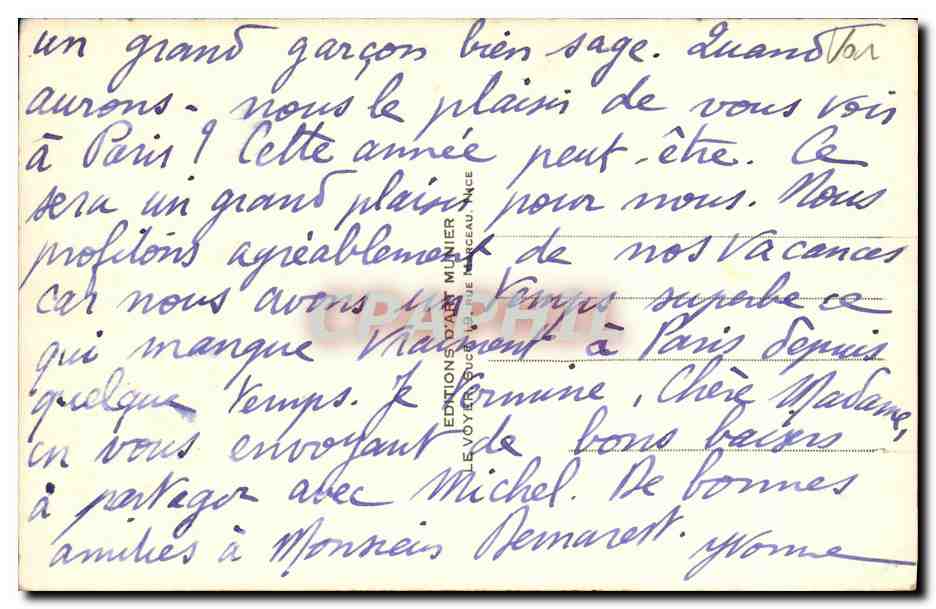 un grand garçon bien sage. Quand
Var
aurons-nous le plaisir de vous voir
à Paris ? Cette année peut-être. Ce
sera un grand plaisir pour nous. Nous
profitons agréablement de nos vacances
car nous avons un temps superbe ce
qui manque vraiment à Paris depuis
quelque temps. Je termine, Chère Madame,
en vous envoyant de bons baisers
à partager avec Michel. De bonnes
amitiés à Monsieur
Yvonne
EDITIONS D'ART MUNIER
LE VOYER, Succ. 19, RUE MARCEAU. NICE
CPAPHIL